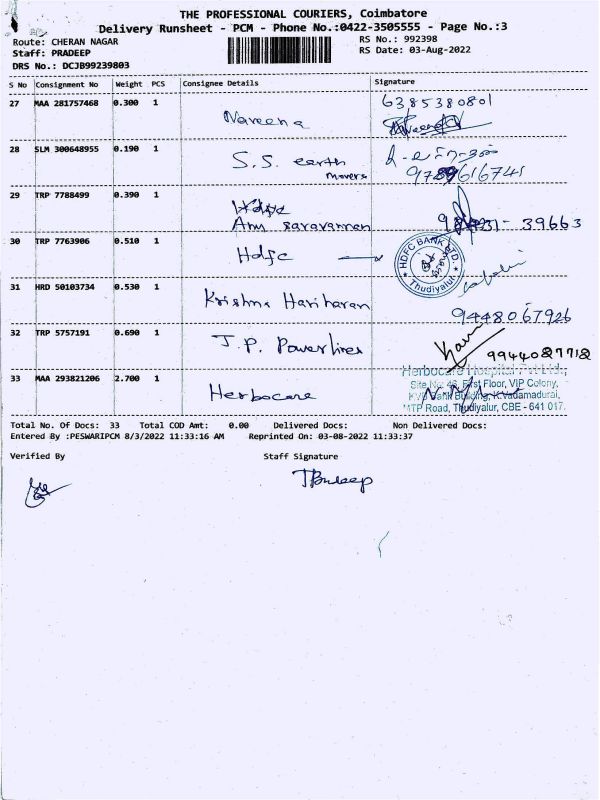 THE PROFESSIONAL COURIERS, Coimbatore
Delivery Runsheet - PCM - Phone No.:0422-3505555 - Page No.:3
Route: CHERAN NAGAR RS No.: 992398
Staff: PRADEEP RS Date: 03-Aug-2022
DRS No.: DCJB99239803
S No Consignment No Weight PCS Consignee Details Signature
27 MAA 281757468 0.300 1 Naveena 6385380801
28 SLM 300648955 0.190 1 S.S. earth movers 9789616741
29 TRP 7788499 0.390 1 Arun saravannan 39663
30 TRP 7763906 0.510 1 Hdfc HDFC BANK LTD. Thudiyalur
31 HRD 50103734 0.530 1 Krishna Hariharan 9448067926
32 TRP 5757191 0.690 1 J.P. Powerlines 9944087718
33 MAA 293821206 2.700 1 Herbocare
Herbocare Hospital Pvt Ltd.,
Site No: 46, First Floor, VIP Colony,
KVB Bank Building, K.Vadamadurai,
MTP Road, Thudiyalur, CBE - 641 017.
Total No. Of Docs: 33 Total COD Amt: 0.00 Delivered Docs: Non Delivered Docs:
Entered By :PESWARIPCM 8/3/2022 11:33:16 AM Reprinted On: 03-08-2022 11:33:37
Verified By Staff Signature